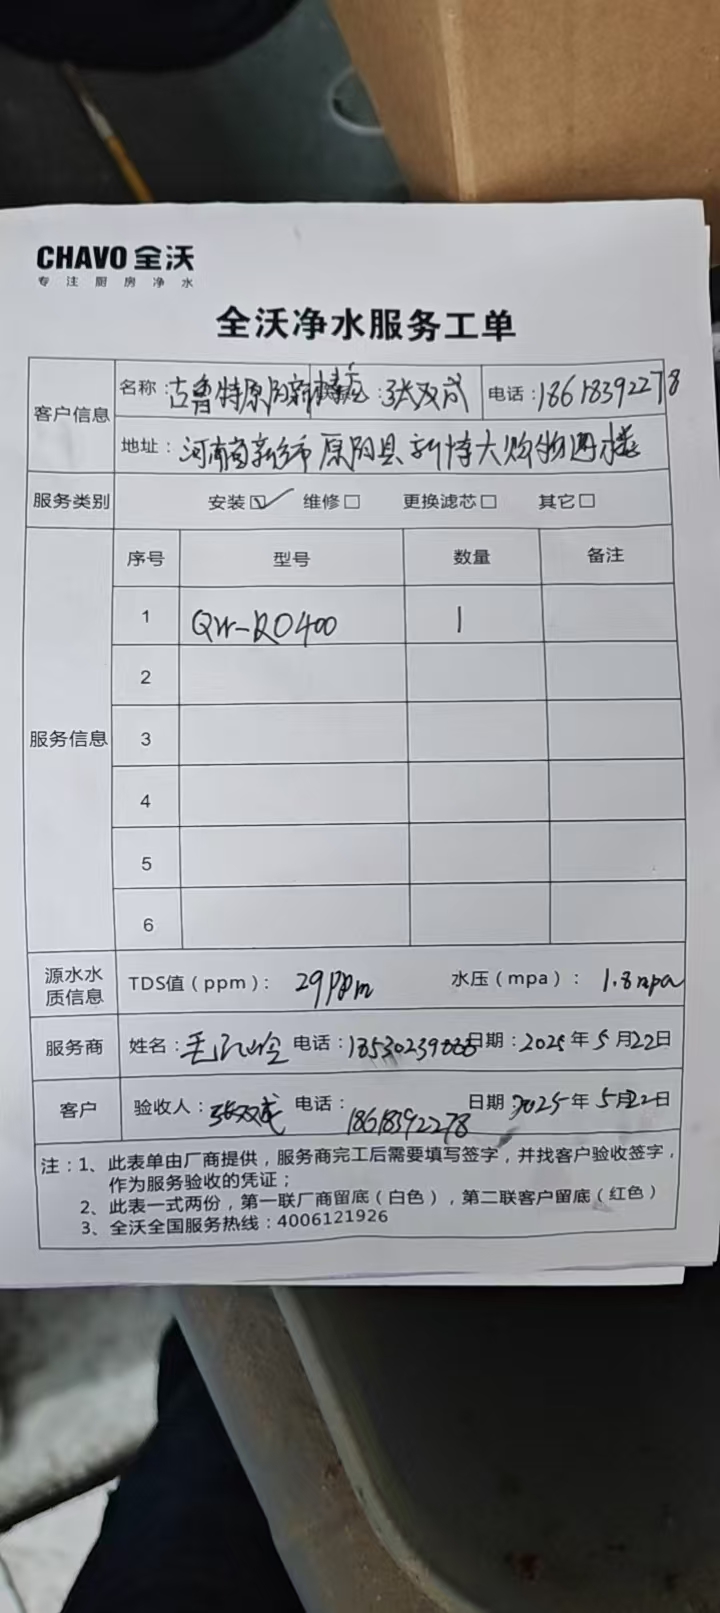 CHAVO 全沃
专注厨房净水
全沃净水服务工单
客户信息
名称：古鲁特原阳新 店 ：张双成 电话：18618392278
地址：河南省新乡市原阳县 大购物四楼
服务类别 安装☑ 维修□ 更换滤芯□ 其它□
服务信息
序号 型号 数量 备注
1 QW-RO400 1
2
3
4
5
6
源水水质信息 TDS值（ppm）： 29ppm 水压（mpa）： 1.8mpa
服务商 姓名：毛 岭 电话： 日期：2025年5月22日
客户 验收人：张双成 电话：18618392278 日期：2025年5月22日
注：1、此表单由厂商提供，服务商完工后需要填写签字，并找客户验收签字，
作为服务验收的凭证；
2、此表一式两份，第一联厂商留底（白色），第二联客户留底（红色）
3、全沃全国服务热线：4006121926